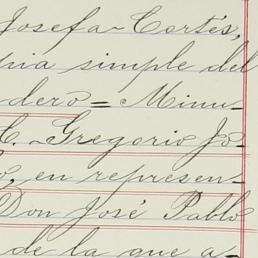 Josefa Cortés,
pia simple del
dero = Minu-
C. Gregorio Jo-
o, en represen-
Don José Pablo
de la que a-